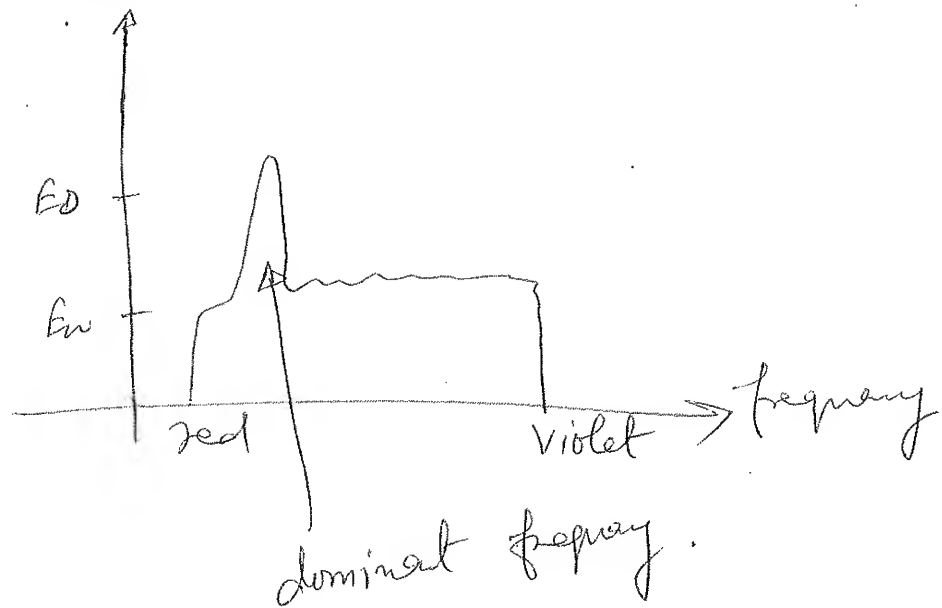 ED
EW
red
Violet
frequency
dominant frequency.